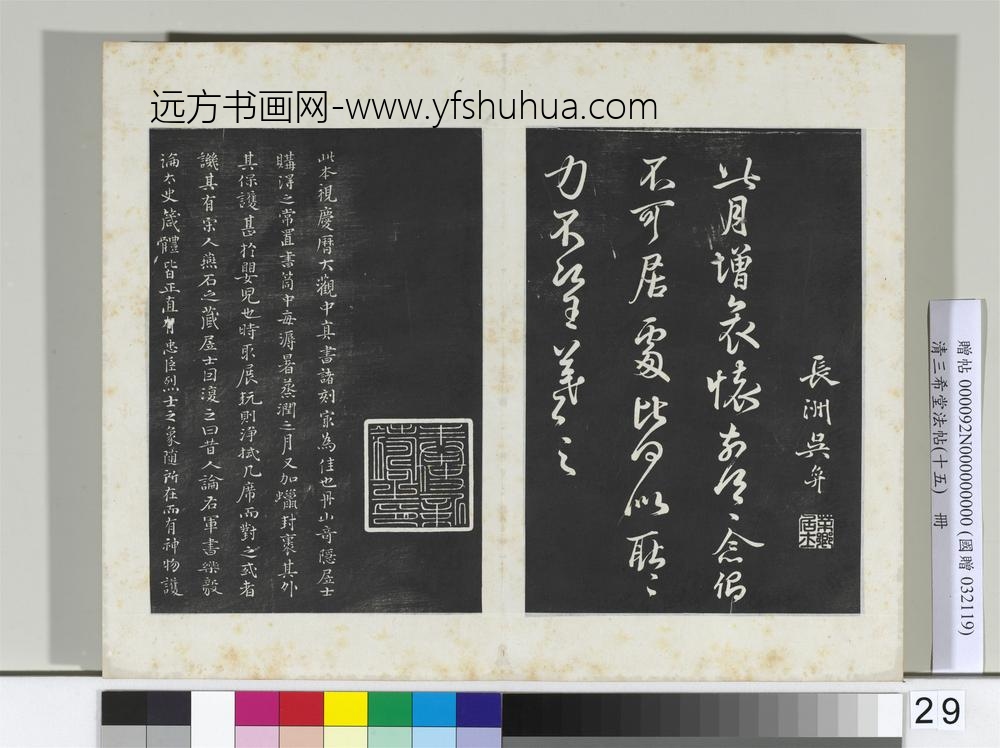 远方书画网-www.yfshuhua.com
長洲吳奕
此月增哀懷前
不可居處比
力不
此本視慶曆大觀中真書諸刻家為佳也丹山奇隱居士
購得之常置書笥中每溽暑蒸潤之月又加蠟封裹其外
其保護甚於嬰兒也時取展玩則淨拭几席而對之或者
譏其有宋人燕石之藏居士因復之曰昔人論右軍書樂毅
論太史箴體皆正直有忠臣烈士之象隨所在而有神物護
贈帖 0000092N000000000 (國贈 032119)
清三希堂法帖(十五) 冊
29